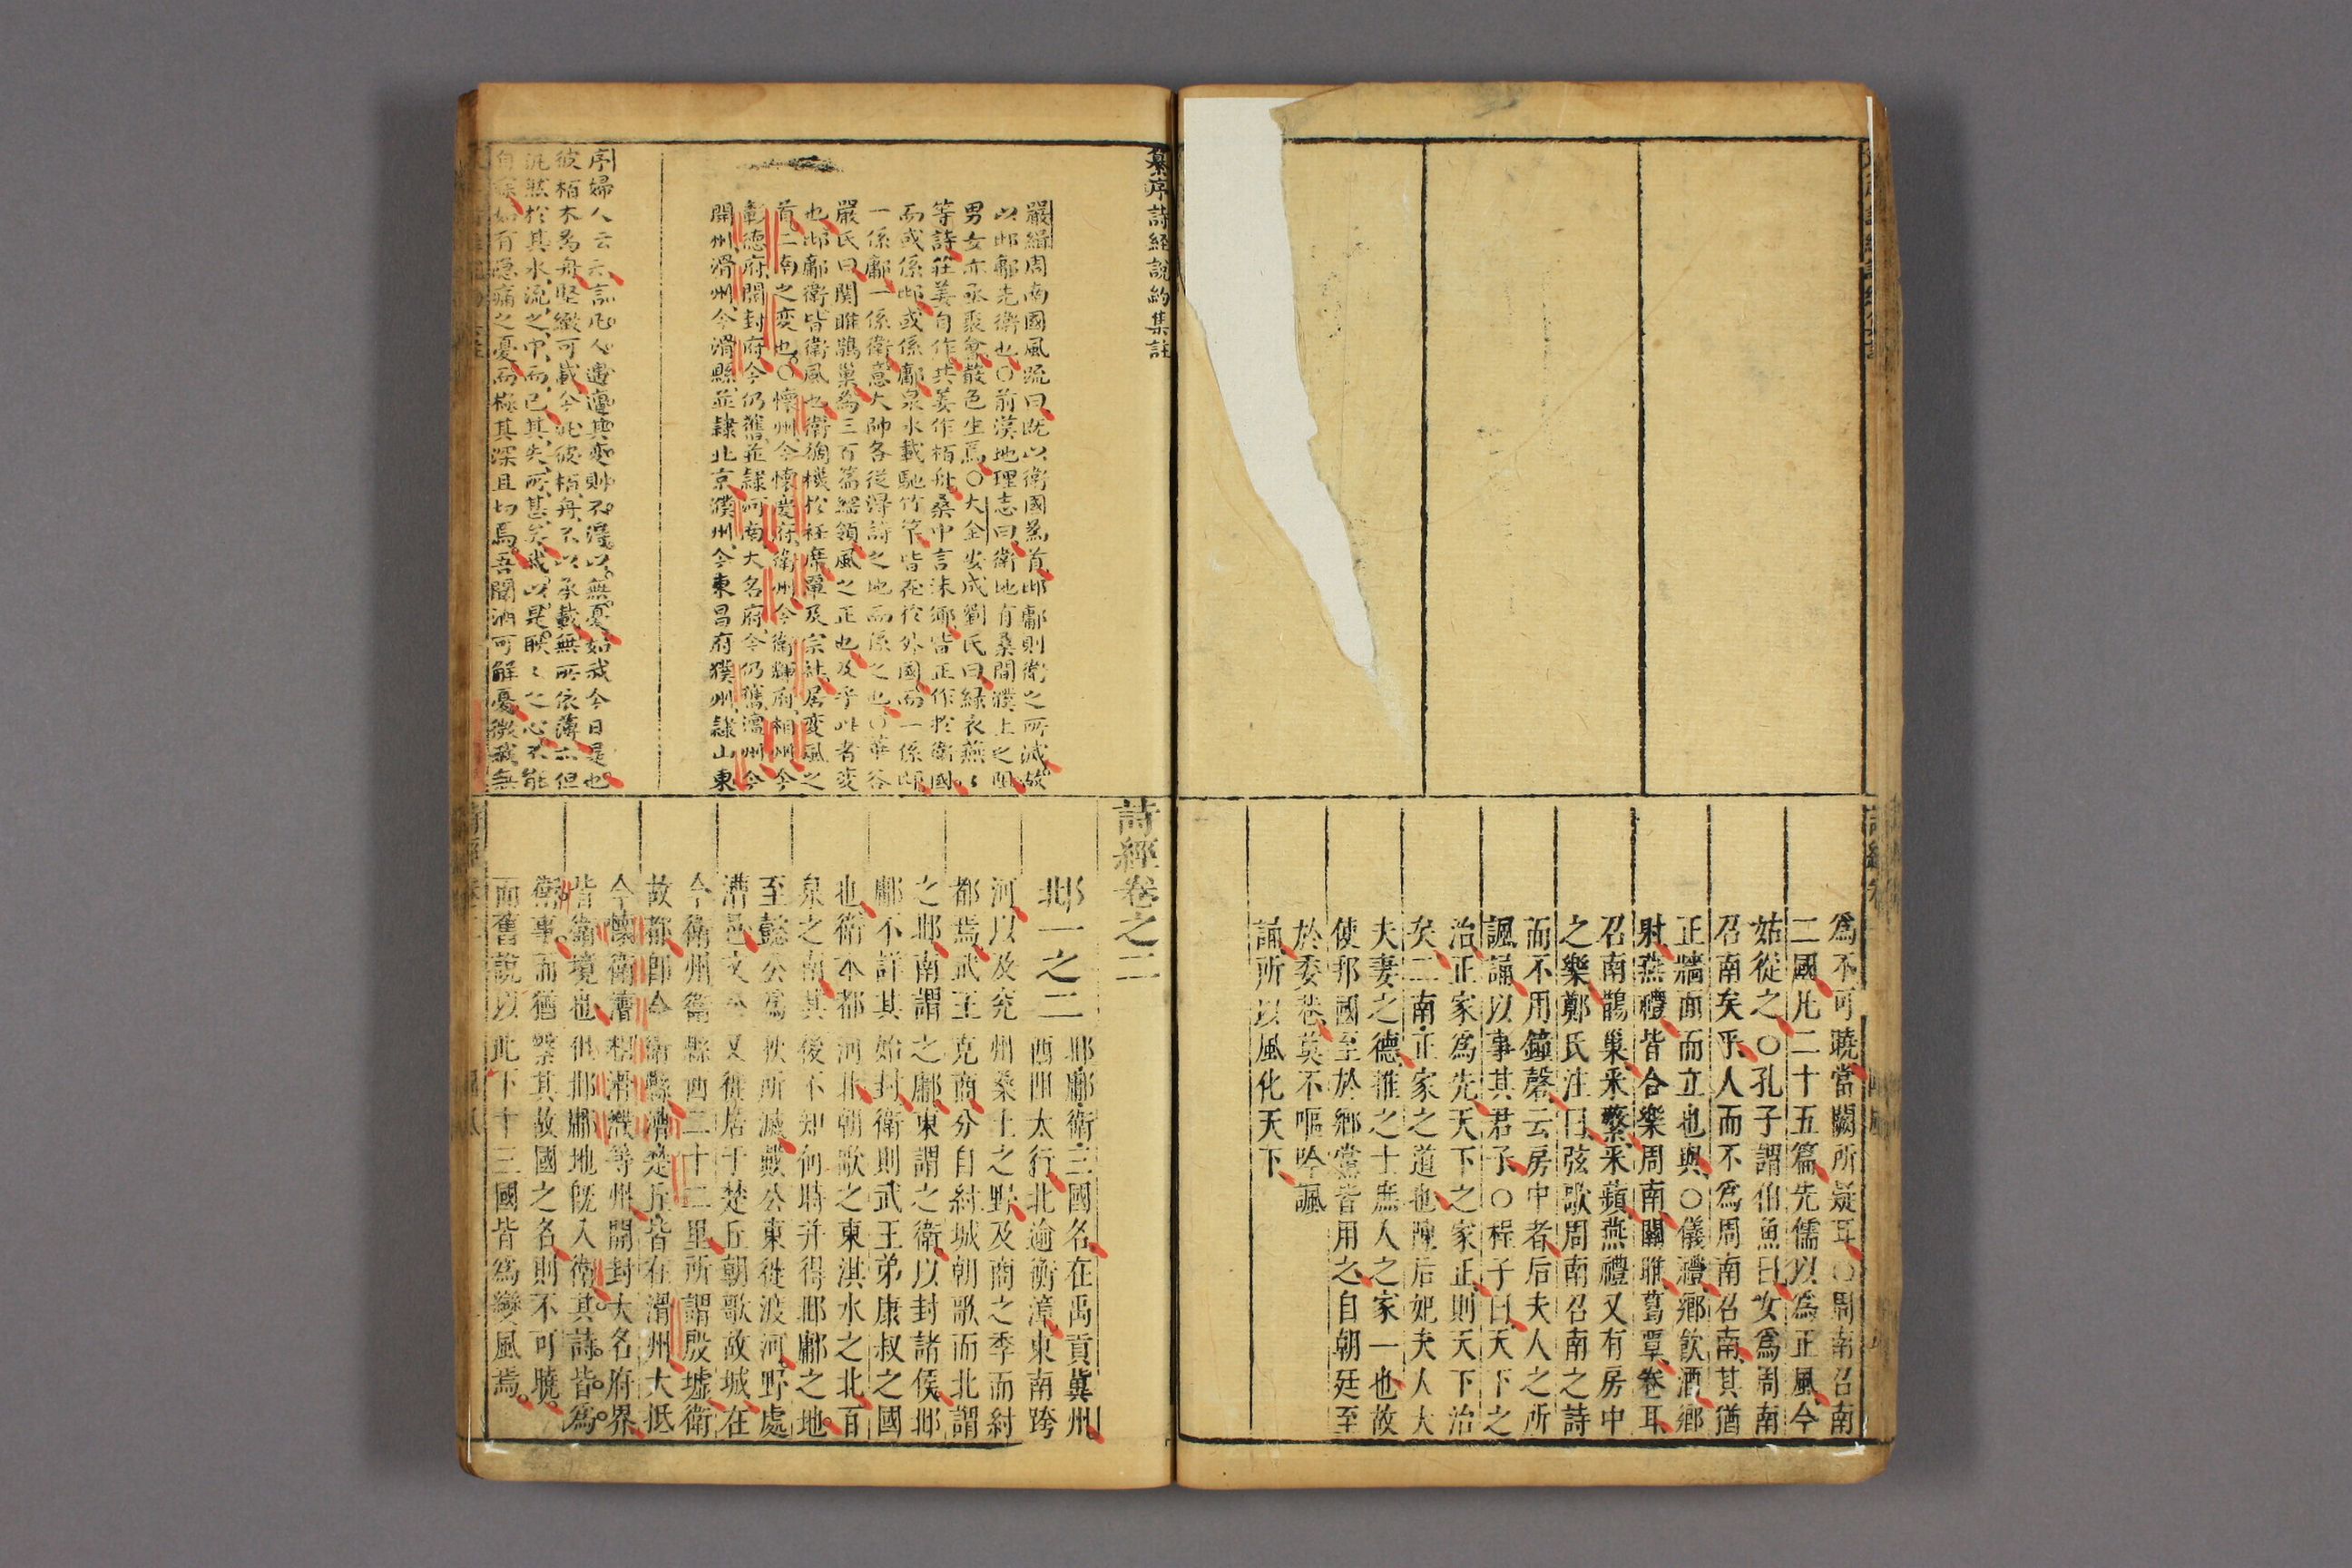 爲不可曉當闕所疑耳○周南召南
二國凡二十五篇先儒以爲正風今
姑從之○孔子謂伯魚曰女爲周南
召南矣乎人而不爲周南召南其猶
正牆面而立也與○儀禮鄉飲酒鄉
射燕禮皆合樂周南關雎葛覃卷耳
召南鵲巢采蘩采蘋燕禮又有房中
之樂鄭氏注曰弦歌周南召南之詩
而不用鐘磬云房中者后夫人之所
諷誦以事其君子○程子曰天下之
治正家爲先天下之家正則天下治
矣二南正家之道也陳后妃夫人大
夫妻之德推之士庶人之家一也故
使邦國至於鄉黨皆用之自朝廷至
於委巷莫不嘔吟諷
誦所以風化天下
纂序詩経說約集註
嚴緝周南國風疏曰既以衛國爲首邶鄘則衛之所滅故
以邶鄘先衛也○前漢地理志曰衛地有桑間濮上之阻
男女亦亟聚會聲色生焉○大全安成劉氏曰綠衣燕〻
等詩莊姜自作共姜作栢舟桑中言沬鄉皆正作於衛國
而或係邶或係鄘泉水載馳竹竿皆在於外國而一係邶
一係鄘一係衛意大師各從淂詩之地而係之也○華谷
嚴氏曰関雎鵲巢為三百篇綱領風之正也及乎此者変
也邶鄘衛皆衛風也衛禍機於衽席單及宗社居変風之
首二南之変也○懷州今懷慶府衛州今衛輝府相州今
彰德府開封府今仍舊並隷河南大名府今仍舊澶州今
開州滑州今滑縣並隷北京濮州今東昌府濮州隷山東
序婦人云云言凡人遭其変則不淂以無憂如我今日是也
彼栢木爲舟堅緻可載今此彼栢舟不以承載無所依薄亦但
汎然於其水流之中而已其失所甚矣我以是耿〻之心不能
自寐如有隠痛之憂而極其深且切焉吾聞酒可解憂微我無
詩經卷之二
邶一之三
邶鄘衛三國名在禹貢冀州
西阻太行北逾衡漳東南跨
河以及兖州桑土之野及商之季而紂
都焉武王克商分自紂城朝歌而北謂
之邶南謂之鄘東謂之衛以封諸侯邶
鄘不詳其始封衛則武王弟康叔之國
也衛本都河北朝歌之東淇水之北百
泉之南其後不知何時并得邶鄘之地
至懿公爲狄所滅戴公東徙渡河野處
漕邑文公又徙居于楚丘朝歌故城在
今衛州衛縣西二十二里所謂殷墟衛
故都即今衛縣漕楚丘皆在滑州大抵
今懷衛澶相滑濮等州開封大名府界
皆衛境也但邶鄘地旣入衛其詩皆爲
衛事而猶繫其故國之名則不可曉
而舊說以此下十三國皆爲變風焉